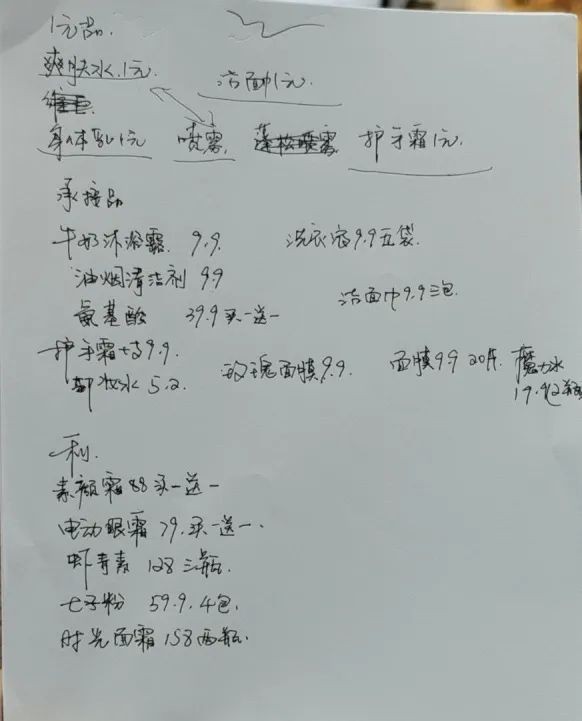 1元品.
爽肤水.1元. 洁面巾1元.
身体乳1元 喷雾. 护手霜1元.
承接品
牛奶沐浴露 9.9. 洗衣液9.9五袋.
油烟清洁剂 9.9
氨基酸 39.9买一送一 洁面巾9.9三包.
护手霜十支9.9.
卸妆水5.2. 玫瑰面膜9.9. 面膜9.9 20片. 魔力冰
19.9/2瓶
利.
素颜霜88买一送一
电动眼霜79.买一送一.
虾青素 128三瓶.
七子粉 59.9.4包.
时光面霜158两瓶.